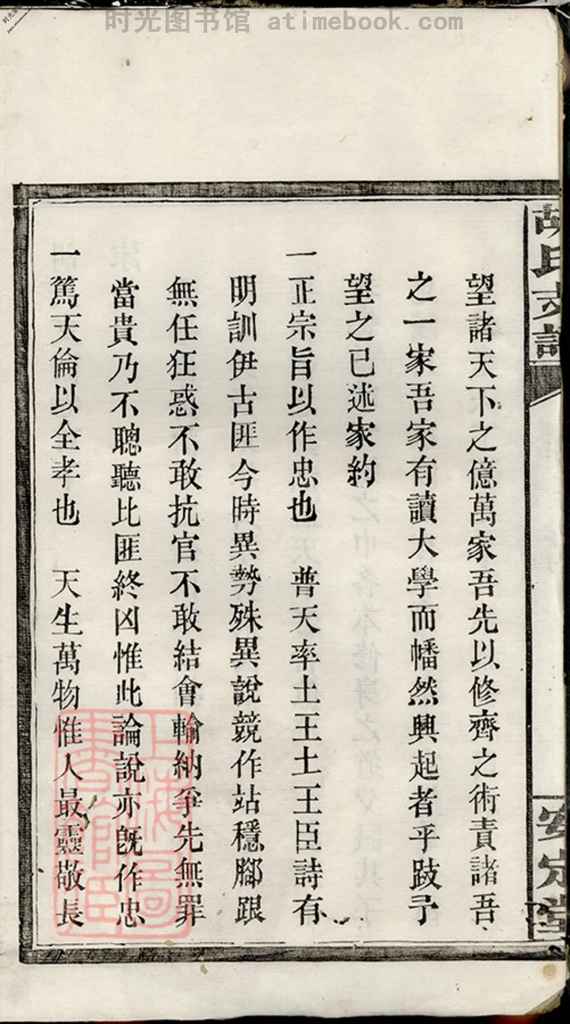 时光图书馆 atimebook.com
胡氏支譜
安定堂
望諸天下之億萬家吾先以修齊之術責諸吾
之一家吾家有讀大學而幡然興起者乎跂予
望之已述家約
一正宗旨以作忠也 普天率土王土王臣詩有
明訓伊古匪今時異勢殊異說競作站穩腳跟
無任狂惑不敢抗官不敢結會輸納爭先無罪
當貴乃不聰聽比匪終凶惟此論說亦旣作忠
一篤天倫以全孝也 天生萬物惟人最靈敬長
上海圖書館藏